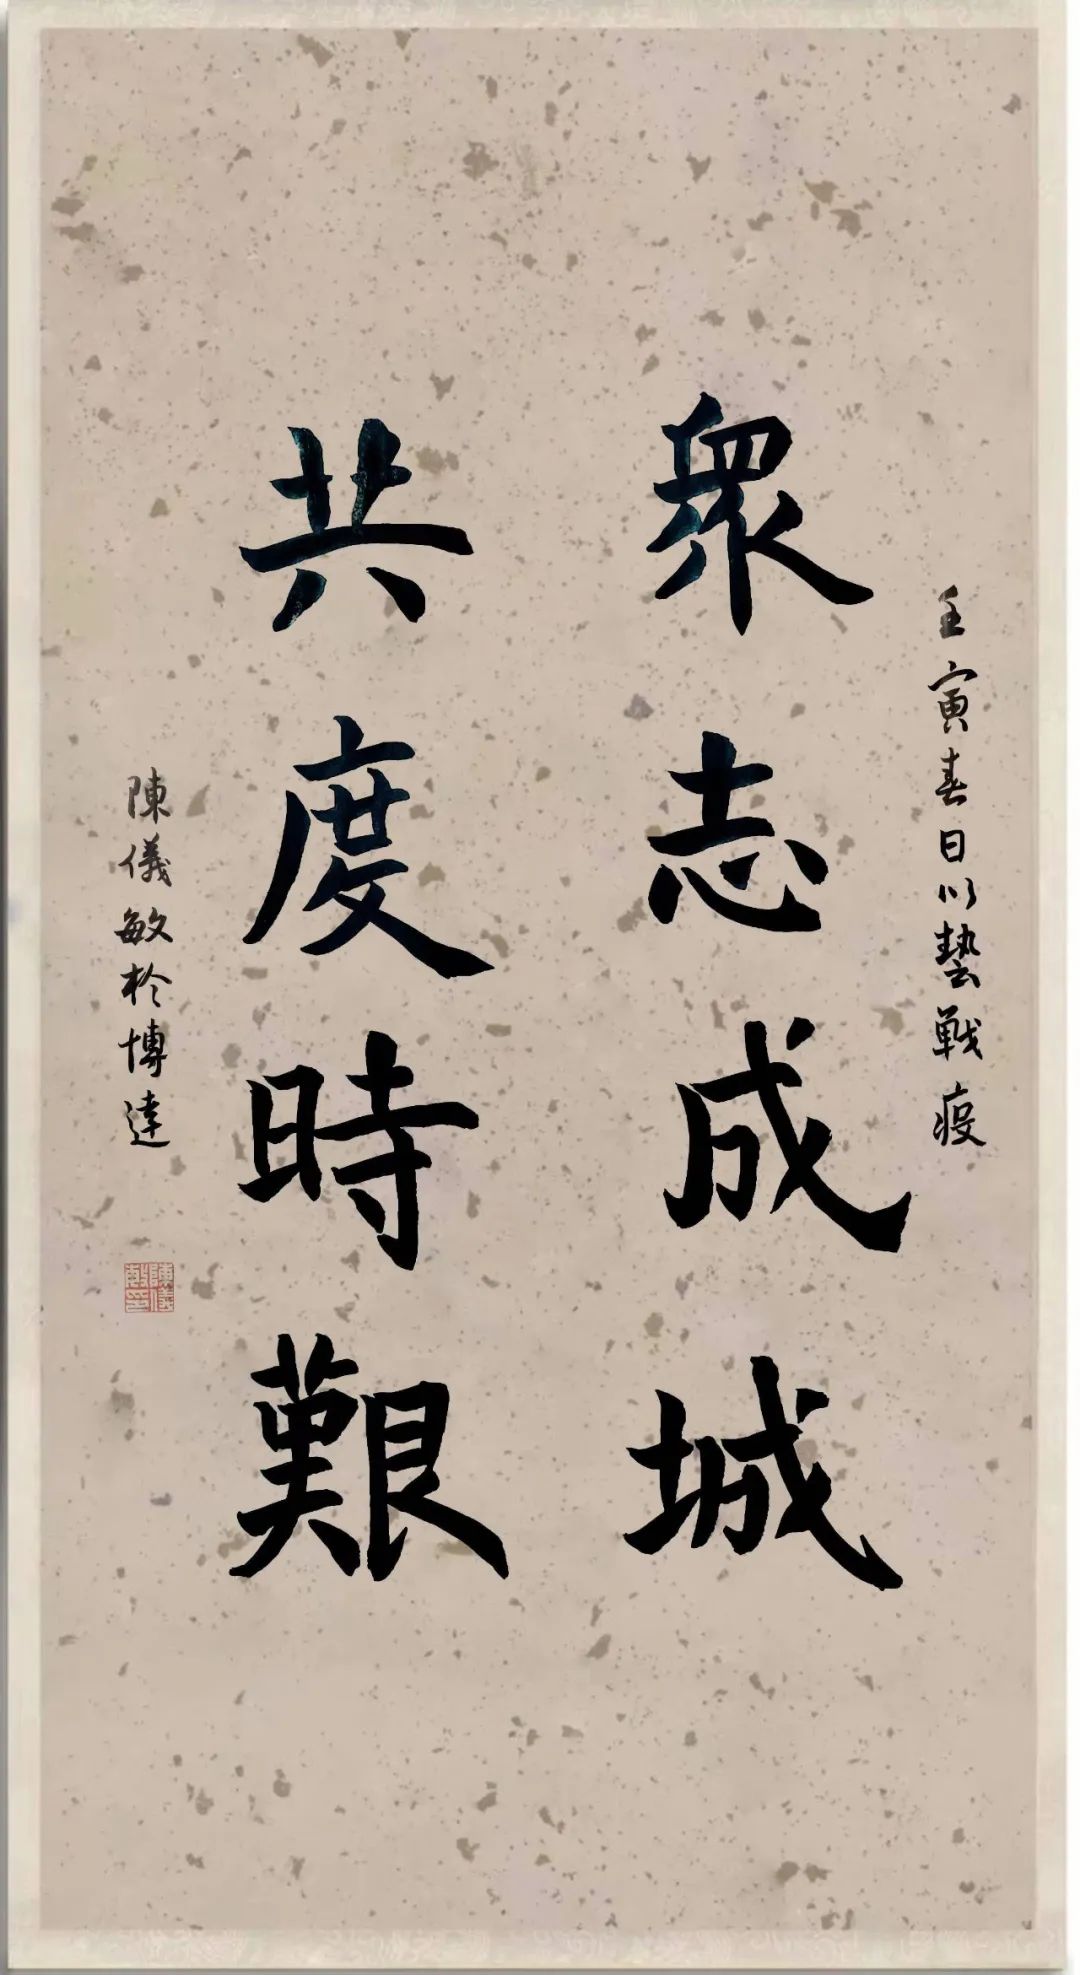 壬寅春日以藝戰疫
眾志成城
共度時艱
陳儀敏於博達